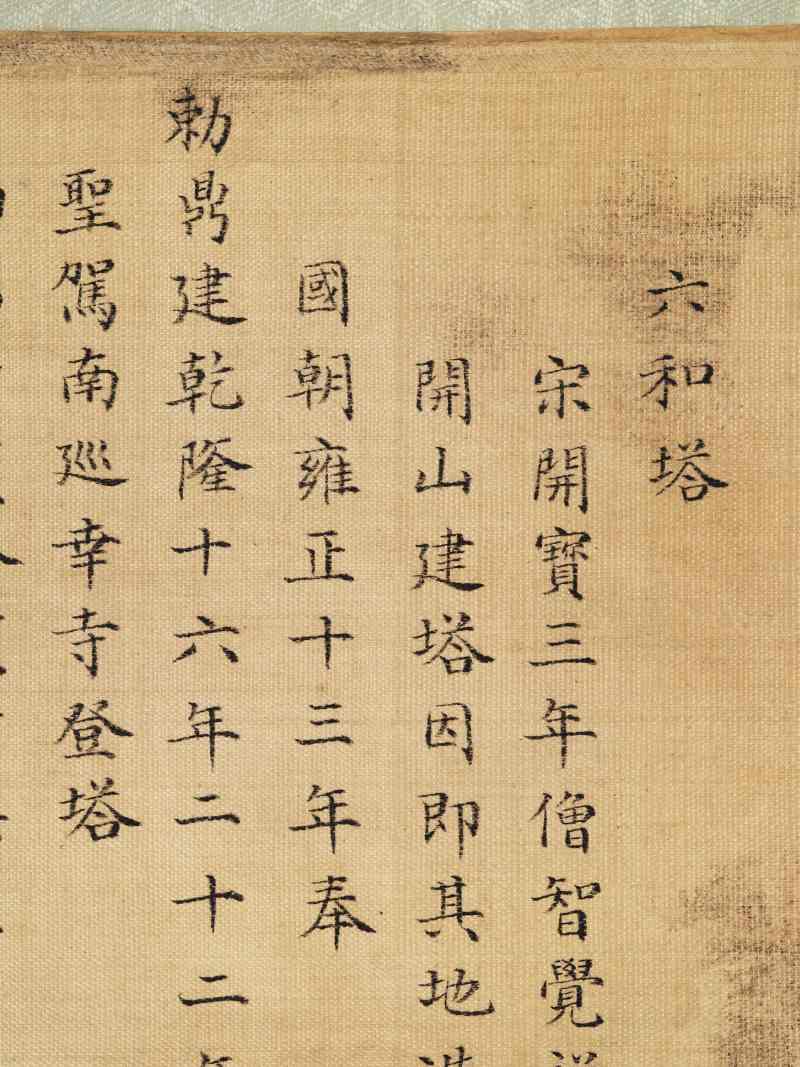 六和塔
宋開寶三年僧智覺
開山建塔因即其地
國朝雍正十三年奉
勅鼎建乾隆十六年二十二
聖駕南巡幸寺登塔